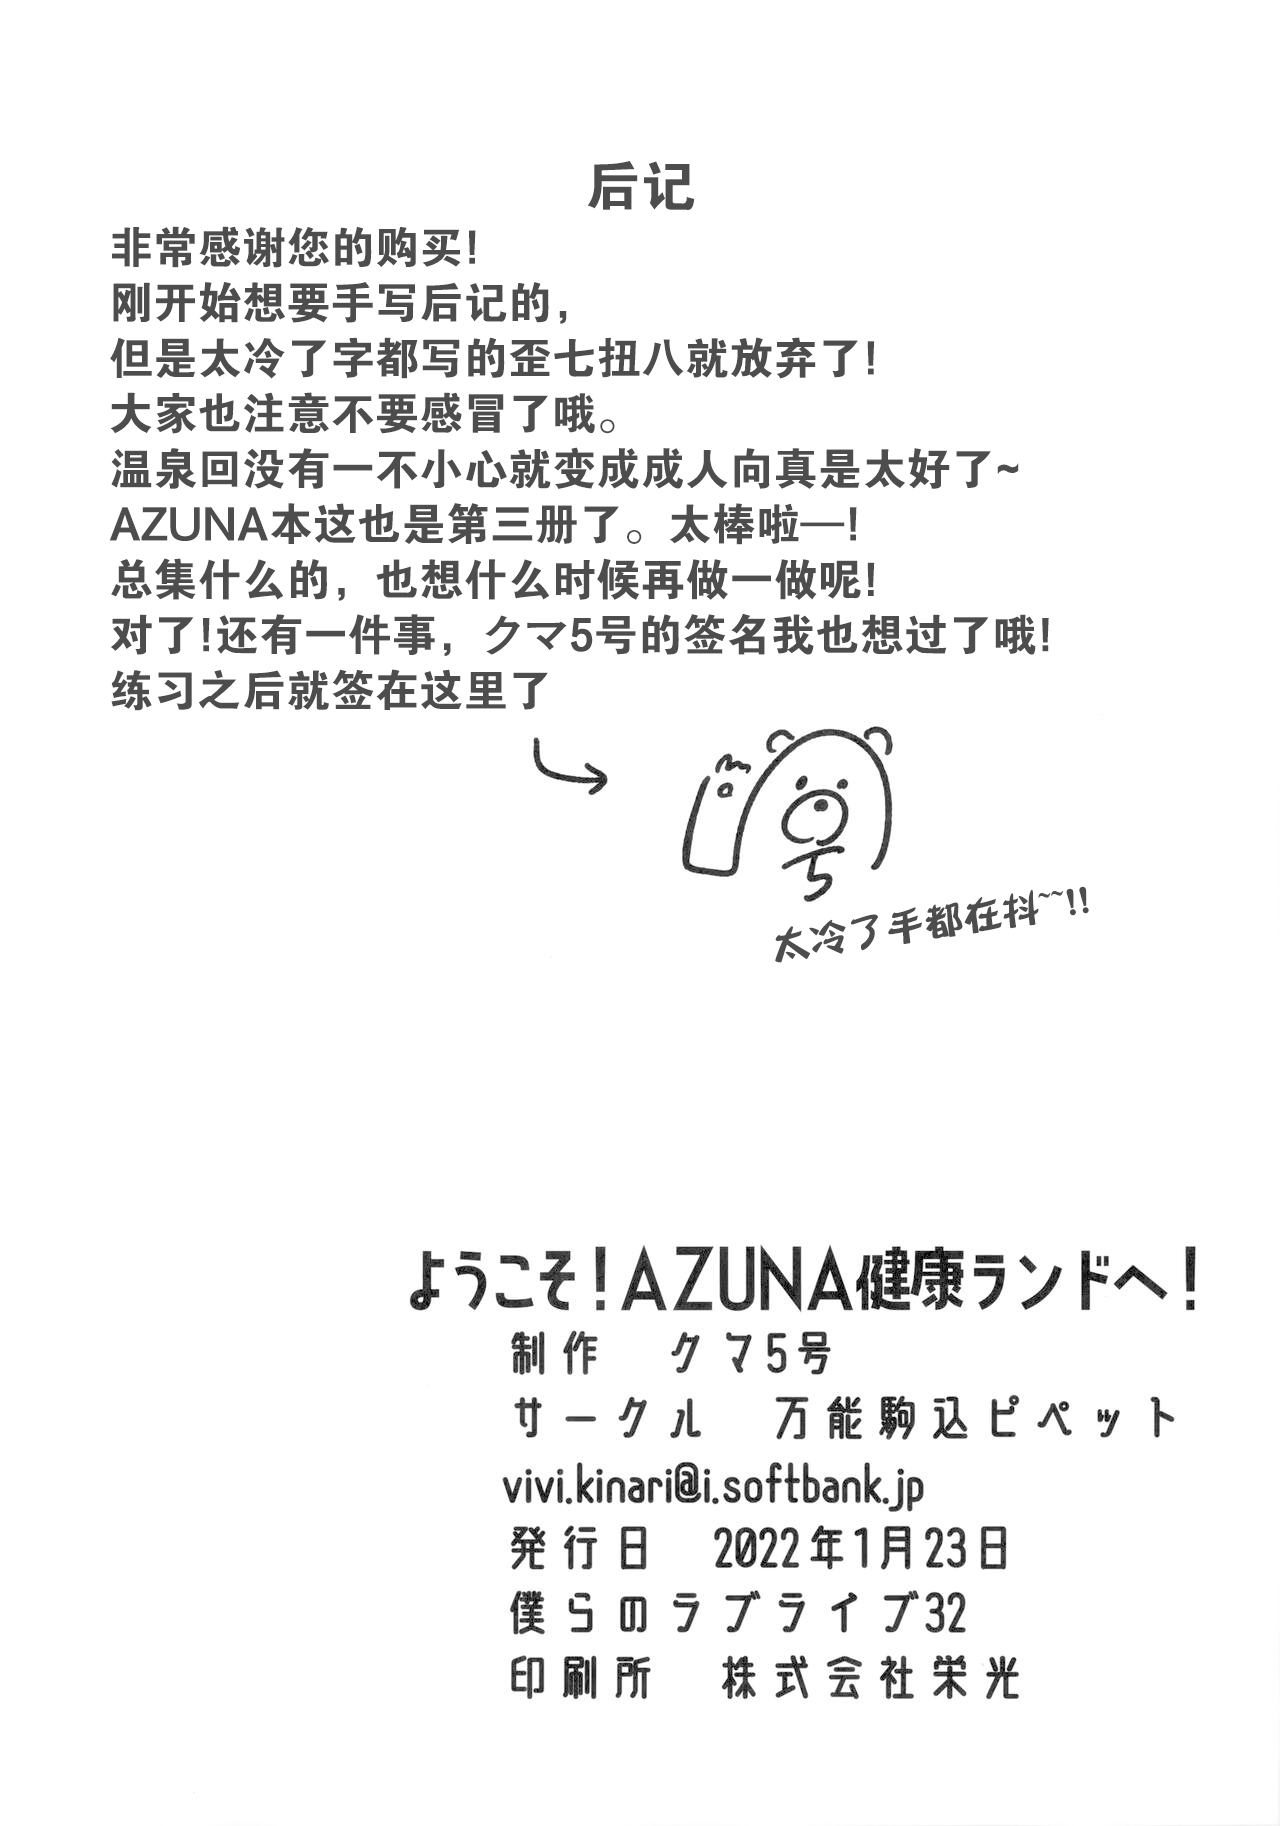 后记
非常感谢您的购买!
刚开始想要手写后记的,
但是太冷了字都写的歪七扭八就放弃了!
大家也注意不要感冒了哦。
温泉回没有一不小心就变成成人向真是太好了~
AZUNA本这也是第三册了。太棒啦—!
总集什么的, 也想什么时候再做一做呢!
对了!还有一件事, クマ5号的签名我也想过了哦!
练习之后就签在这里了
5
太冷了手都在抖~~!!
ようこそ!AZUNA健康ランドへ!
制作 クマ5号
サークル 万能駒込ピペット
vivi.kinari@i.softbank.jp
発行日 2022年1月23日
僕らのラブライブ32
印刷所 株式会社栄光